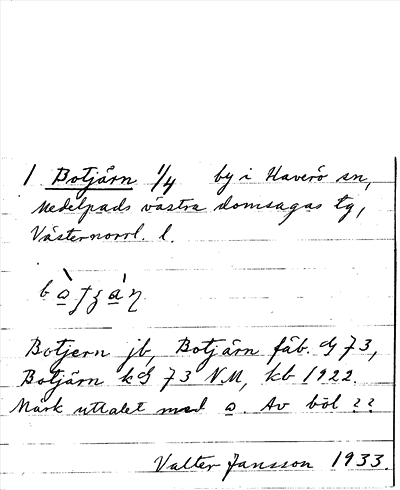 1 Botjärn 1/4 by i Haverö sn,
Medelpads västra domsagas tg,
Västernorrl. l.
Botjern jb, Botjärn fäb. G 73,
Botjärn kG 73 NM, kb 1922.
Märk uttalet med o. Av böl ??
Valter Jansson 1933.